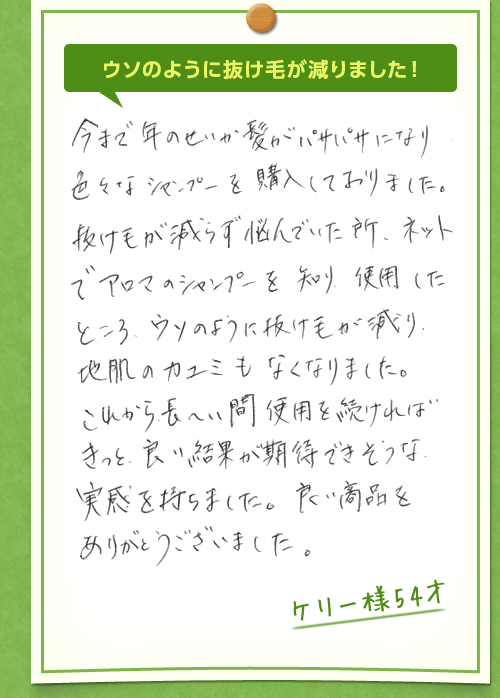 ウソのように抜け毛が減りました！
今まで年のせいか髪がパサパサになり
色々なシャンプーを購入しておりました。
抜け毛が減らず悩んでいた所、ネット
でアロマのシャンプーを知り使用した
ところ、ウソのように抜け毛が減り、
地肌のカユミもなくなりました。
これから長〜い間使用を続ければ
きっと、良い結果が期待できそうな、
実感を持ちました。良い商品を
ありがとうございました。
ケリー様54才